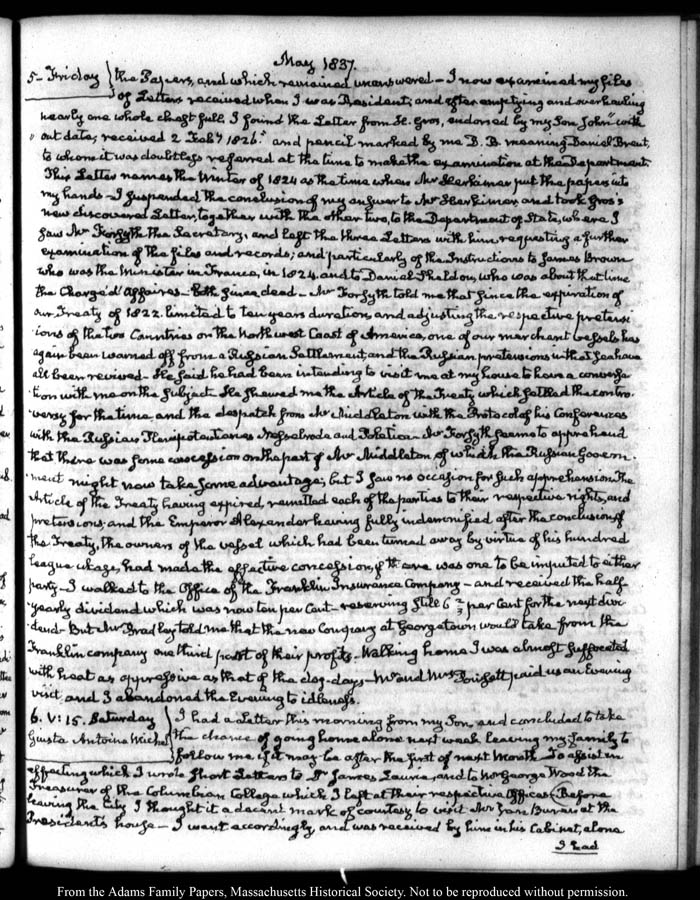 May 1837.
5 - Friday } the Papers, and which remained unanswered - I now examined my files
of Letters received when I was President; and after emptying and overhauling
nearly one whole chest full I found the Letter from St. Gros, endorsed by my Son John "with
" out date, received 2 Feby 1826." and pencil marked by me D. B. meaning Daniel Brent,
to whom it was doubtless referred at the time to make the examination at the Department.
This Letter names the Winter of 1824 as the time when Mr Herkimer put the papers into
my hands - I suspended the conclusion of my answer to Mr Herkimer, and took Gros's
new discovered Letter, together with the other two, to the Department of State, where I
saw Mr Forsyth the Secretary, and left the three Letters with him, requesting a further
examination of the files and records; and particularly of the Instructions to James Brown
who was the Minister in France, in 1824. and to Daniel Sheldon, who was about that time
the Chargé d'Affaires - both since dead - Mr Forsyth told me that since the expiration of
our Treaty of 1822. limited to ten years duration, and adjusting the respective pretensi
ions of the two Countries on the Northwest Coast of America, one of our merchant vessels has
again been warned off from a Russian Settlement, and the Russian pretensions in that Sea have
all been revived - He said he had been intending to visit me at my house to have a conversa
tion with me on the subject - He shewed me the Article of the Treaty which settled the contro-
versy for the time, and the despatch from Mr Middleton with the Protocol of his Conferences
with the Russian Plenipotentiaries Nesselrode and Poletica - Mr Forsyth seems to apprehend
that there was some concession on the part of Mr Middleton of which the Russian Govern-
ment might now take some advantage; but I saw no occasion for such apprehension. The
Article of the Treaty having expired, remitted each of the parties to their respective rights, and
pretensions; and the Emperor Alexander having fully indemnified after the conclusion of
the Treaty, the owners of the vessel which had been turned away by virtue of his hundred
league ukase, had made the effective concession, if there was one to be imputed to either
party - I walked to the Office of the Franklin Insurance Company - and received the half
yearly dividend which was now ten per Cent - reserving still 6 2/3 per Cent for the next divi-
dend - But Mr Bradley told me that the new Company at Georgetown would take from the
Franklin company one third part of their profits. Walking home I was almost suffocated
with heat as oppressive as that of the dog-days - Mr and Mrs Poinsett paid us an Evening
visit, and I abandoned the Evening to idleness.
6. V: 15. Saturday } I had a Letter this morning from my Son, and concluded to take
Gusta Antoine Michel the chance of going home alone next week leaving my family to
follow me if it may be after the first of next Month - To assist in
effecting which I wrote short Letters to Dr James Laurie, and to Mr George Wood the
Treasurer of the Columbian College which I left at their respective Offices. Before
leaving the City I thought it a decent mark of courtesy to visit Mr Van Buren at the
President's house - I went accordingly, and was received by him in his Cabinet, alone
I had
From the Adams Family Papers, Massachusetts Historical Society. Not to be reproduced without permission.